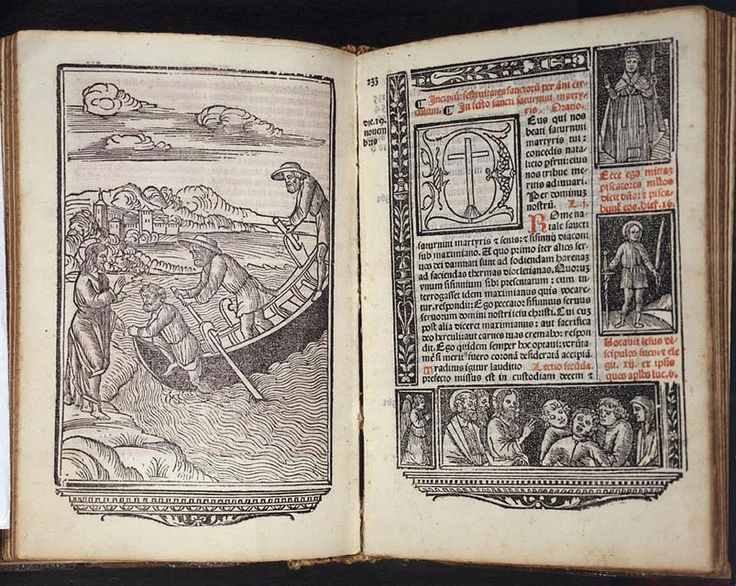 233
die.19.
novem
bris
¶ Incipiũt festiuitates sanctorũ per ãni cir
culum. ¶ In festo sancti saturnini marty
ris. Oratio.
Deus qui nos
beati saturnini
martyris tui:
concedis nata
licio pfrui: eius
nos tribue me
ritis adiuuari.
Per dominum
nostrũ. L.j.
Rome na
tale sancti
saturnini martyris & senis: & sisinnij diaconi
sub maximiano. A quo primo iter alios ser
uos dei damnati sunt ad fodiendam harenaz
ad faciendas thermas diocletianas. Quoruz
vnum sisinnium sibi presentatum: cum in
terrogasset idem maximianus quis vocare
tur. respondit: Ego peccator sisinnius seruus
seruorum domini nostri iesu christi. Cui cuz
post alia diceret maximianus: aut sacrifica
deo herculi: aut carnes tuas cremabo: respon
dit. Ego quidem semper hoc optaui: verũta
mẽ si meritꝰ fuero coronã desideratã accipiã.
Traditus igitur laudicio Lectio secũda.
prefecto missus est in custodiam decem &
Ecce ego mittaz
piscatores mltos
dicit dñs: & pisca
bunt eos. hier. 16
Uocauit iesus di
scipulos suos: & ele
git .xij. ex ipsis
quos aplos luc. 6.